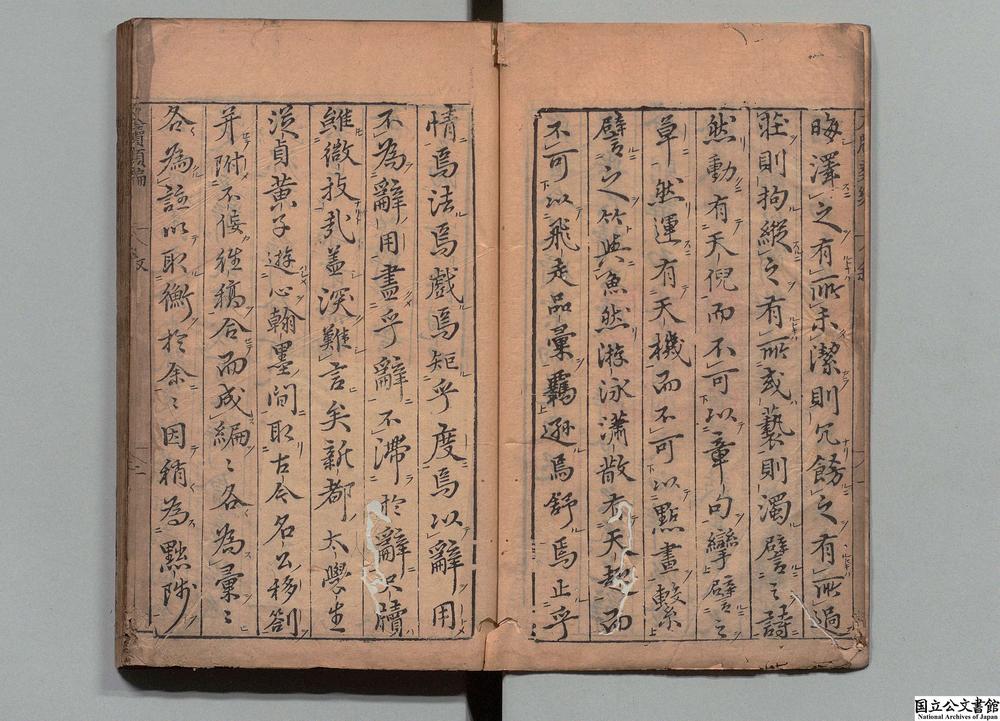 晦澤之有所未潔則冗餝之有所過
莊則拘縱之有所或褻則濁譬之詩
然動有天倪而不可以章句攣譬之
草然運有天機而不可以點畫繫
譬之竺典魚然游泳瀟散有天趣而
不可以飛走品彙羈遜焉舒焉止乎
情焉法焉戲焉矩乎度焉以辭用
不為辭用盡乎辭不滯於辭尺牘
雖微技哉蓋深難言矣新都太學生
從貞黃子遊心翰墨間取古今名公移劄
并附不佞往稿合而成編〻各為彙〻
各為註以取衡於余〻因稍為點陟
國立公文書館
National Archives of Japan